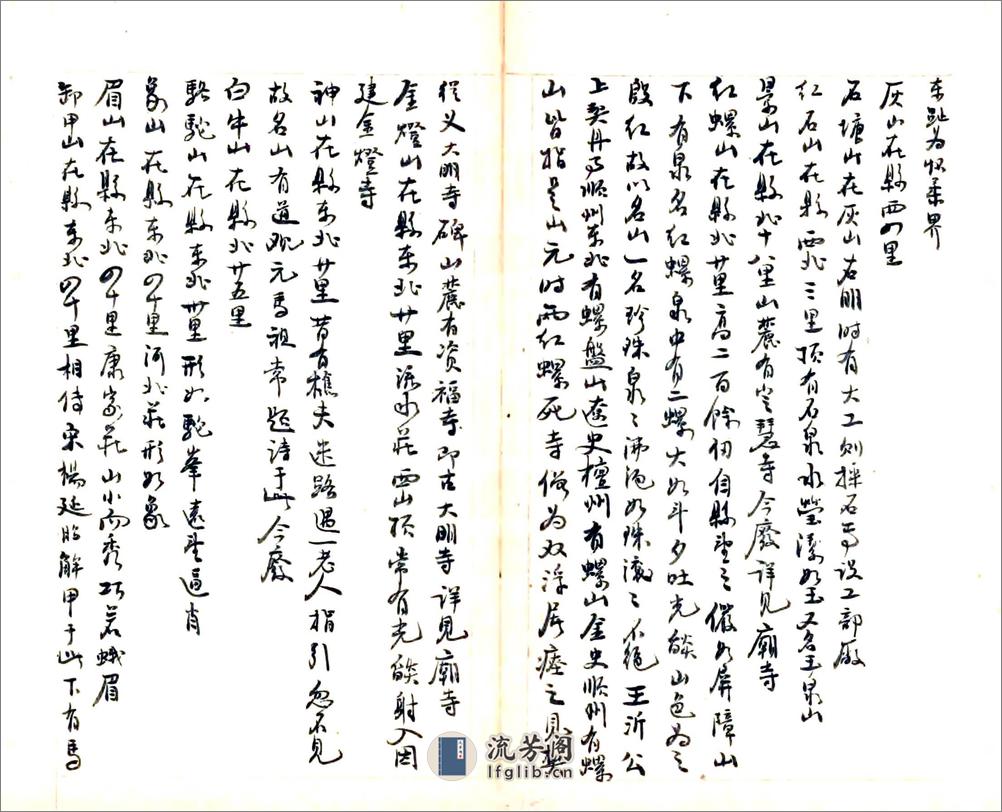 东趾为怀柔界
灰山在縣西四里
石塘山在灰山右明时有大工则採石于此设工部廠
红石山在縣西北三里顶有石泉水瑩潔如玉又名玉泉山
景山在縣北十八里山麓有琵琶寺今廢详見廟寺
红螺山在縣北廿里高二百餘仞自縣望之儼如屏障山
下有泉名红螺泉中有二螺大如斗夕吐光燄山色为之
殷红故以名山一名珍珠泉之沸沲如珠滾之不絶王沂公
上契丹事顺州东北有螺盤山遼史檀州有螺山金史顺州有螺
山皆指是山元时两红螺死寺僧为双浮屠瘗之見
從义大明寺碑山麓有资福寺即古大明寺详見廟寺
金燈山在縣东北廿里泳水莊西山顶常有光燄射入因
建金燈寺
神山在縣东北廿里昔有樵夫迷路遇一老人指引忽不見
故名山有道观元馬祖常题诗于此今廢
白牛山在縣北廿五里
駱駝山在縣东北卅里形如駝峯遠望逼肖
象山在縣东北四十里河北莊形如象
眉山在縣东北四十里康家莊山小而秀巧若蛾眉
卸甲山在縣东北四十里相传宋楊延昭解甲于此下有馬
流芳阁
lfglib.cn